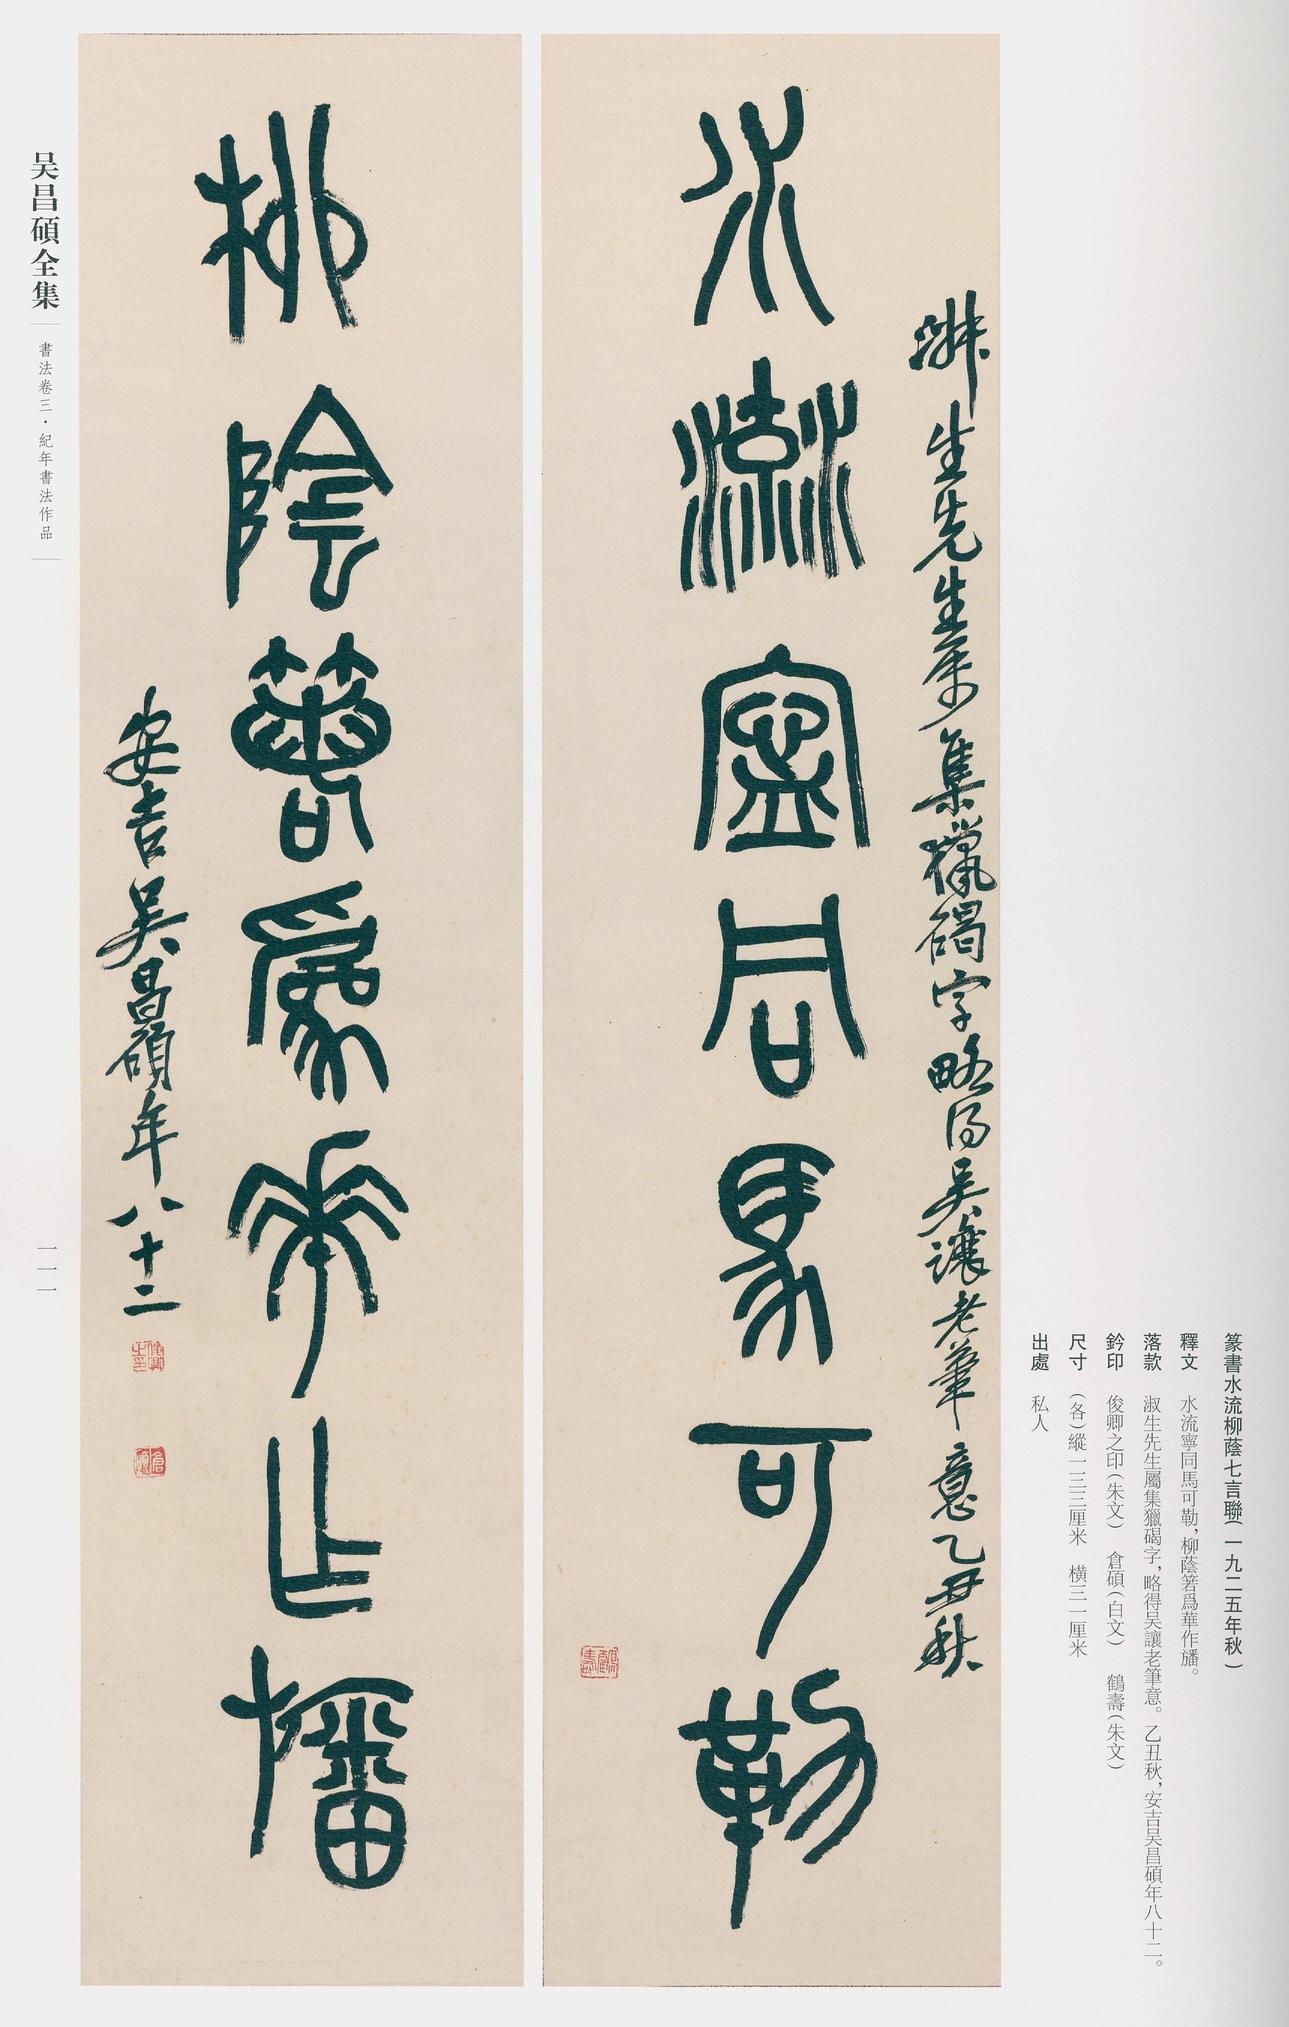 水流寍同馬可勒
淑生先生屬集獵碣字略得吴讓老筆意乙丑秋
鶴壽
柳陰箬爲華乍旛
安吉吴昌碩年八十二
俊卿之印
倉碩
篆書水流柳蔭七言聯（一九二五年秋）
釋文　水流寧同馬可勒，柳蔭箬爲華作旛。
落款　淑生先生屬集獵碣字，略得吴讓老筆意。乙丑秋，安吉吴昌碩年八十二。
鈐印　俊卿之印（朱文）　倉碩（白文）　鶴壽（朱文）
尺寸　（各）縱一三三厘米　橫三一厘米
出處　私人
吴昌碩全集
書法卷三·紀年書法作品
一一一